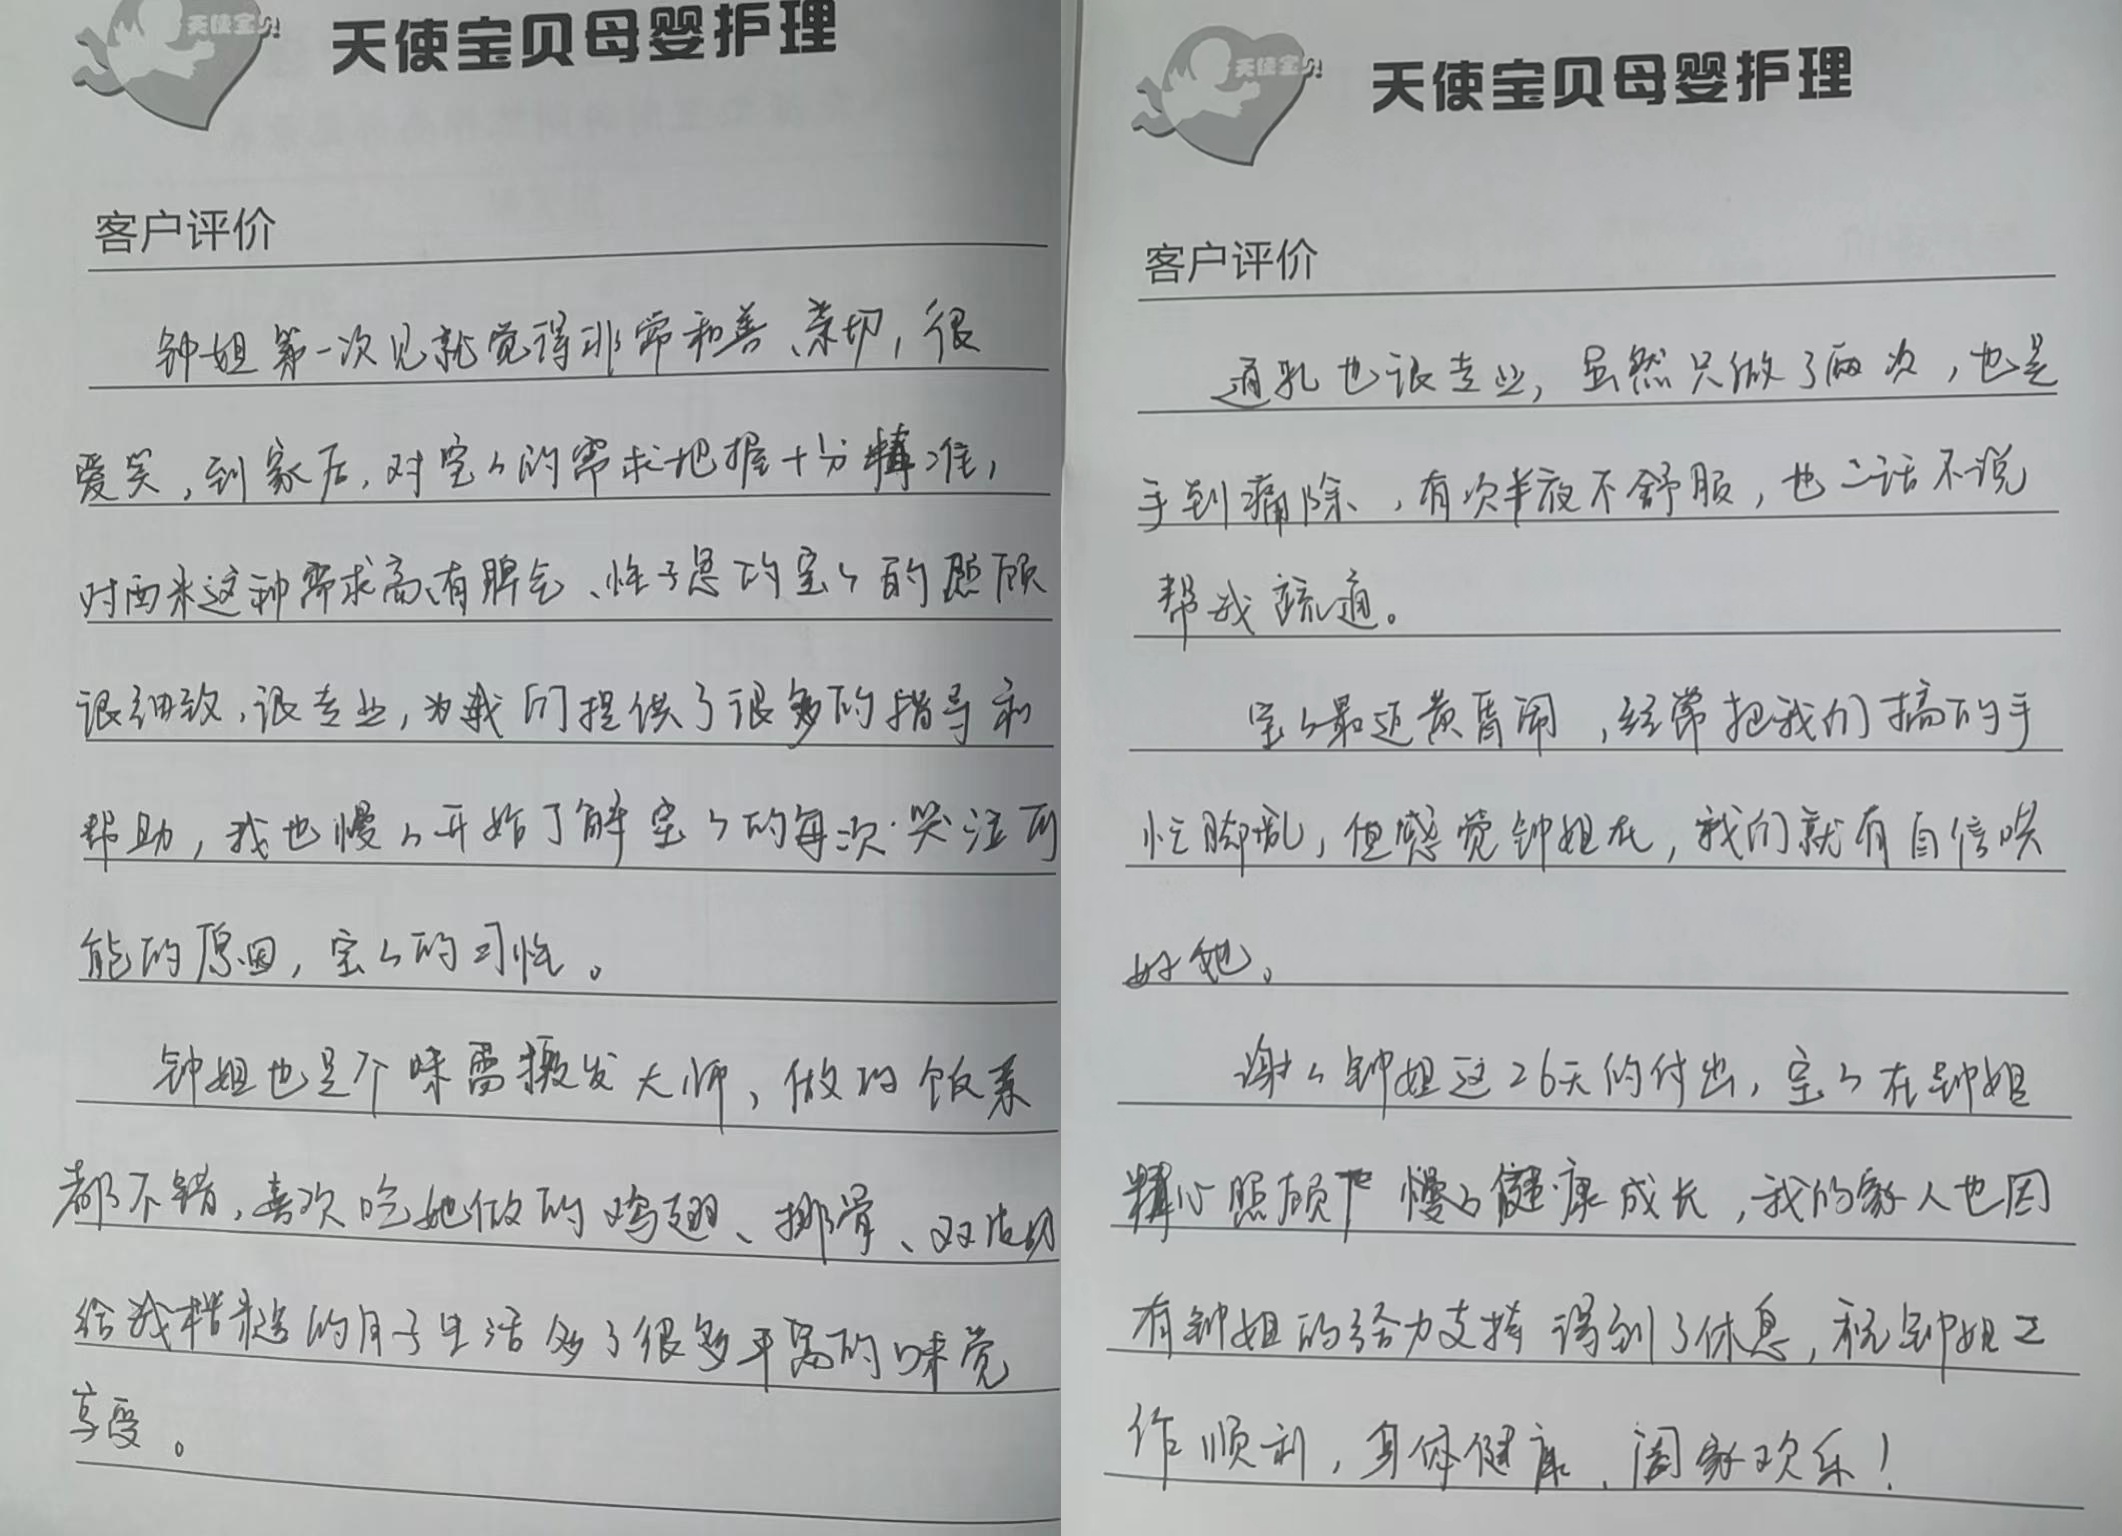 天使宝贝
天使宝贝母婴护理
客户评价
钟姐第一次见就觉得非常和善、亲切，很
爱笑，到家后，对宝々的需求把握十分精准，
对西米这种需求高、有脾气、性子急的宝々的照顾
很细致，很专业，为我们提供了很多的指导和
帮助，我也慢々开始了解宝々的每次哭泣可
能的原因，宝々的习性。
钟姐也是个味蕾激发大师，做的饭菜
都不错，喜欢吃她做的鸡翅、排骨、双皮奶
给我的月子生活多了很多丰富的味觉
享受。
天使宝贝
天使宝贝母婴护理
客户评价
通乳也很专业，虽然只做了两次，也是
手到痛除，有次半夜不舒服，也二话不说
帮我疏通。
宝々最近黄昏闹，经常把我们搞的手
忙脚乱，但感觉钟姐在，我们就有自信哄
好她。
谢々钟姐这26天的付出，宝々在钟姐
精心照顾下慢々健康成长，我的家人也因
有钟姐的给力支持得到了休息，祝钟姐工
作顺利，身体健康、阖家欢乐！